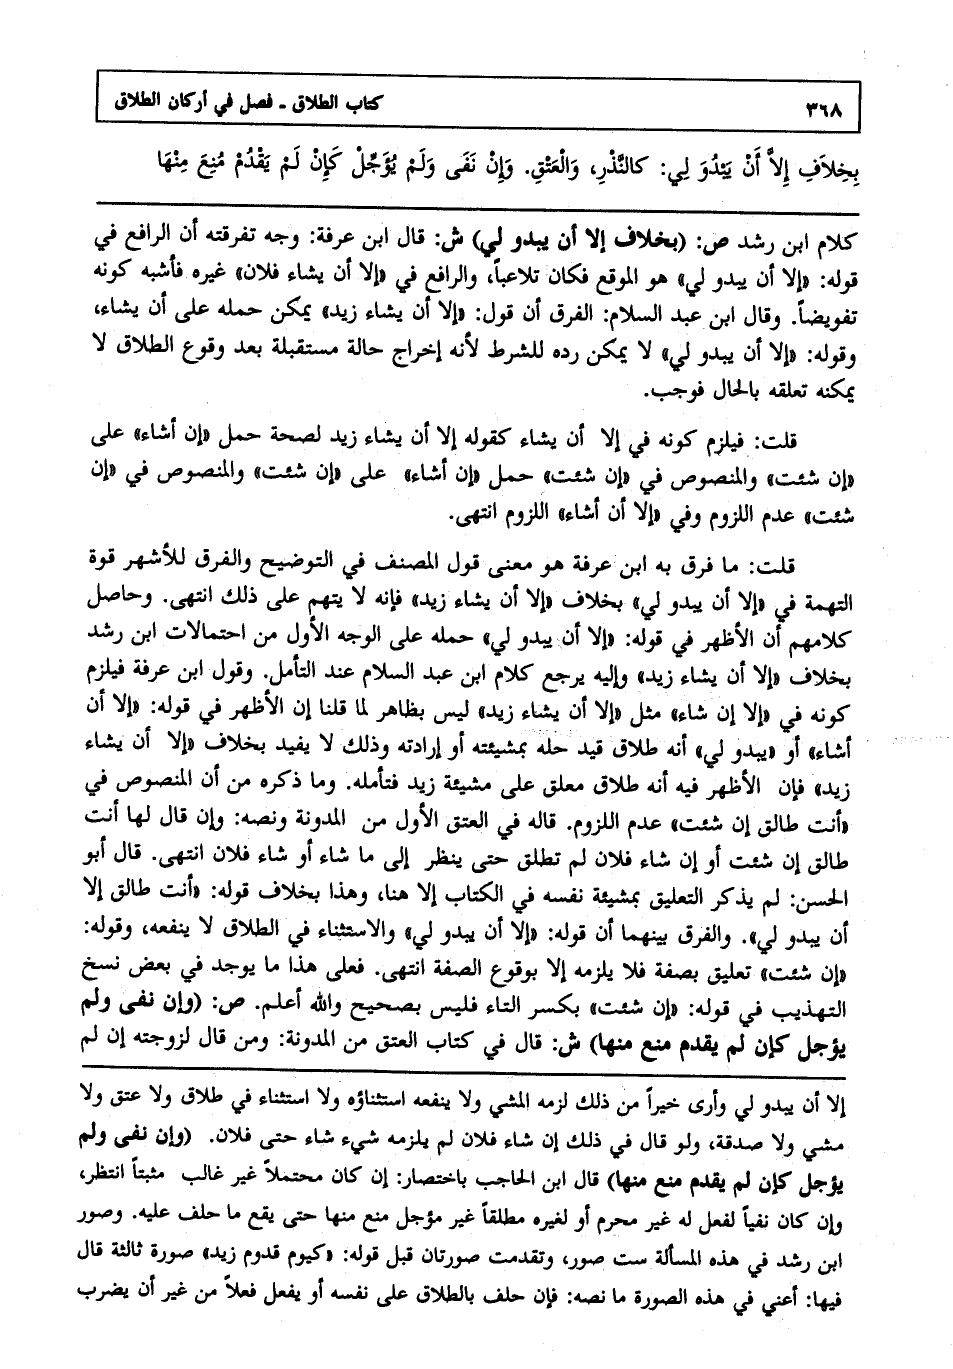 ٣٦٨
كتاب الطلاق ـ فصل في أركان الطلاق
بِخِلاَفِ إِلاَّ أَنْ يَبْدُوَ لِي: كالنَّذْرِ، وَالْعَتْقِ. وَإِنْ نَفَى وَلَمْ يُؤَجِّلْ كَإِنْ لَمْ يَقْدُمْ مُنِعَ مِنْهَا
كلام ابن رشد ص: (بخلاف إلا أن يبدو لي) ش: قال ابن عرفة: وجه تفرقته أن الرافع في
قوله: «إلا أن يبدو لي» هو الموقع فكان تلاعباً، والرافع في «إلا أن يشاء فلان» غيره فأشبه كونه
تفويضاً. وقال ابن عبد السلام: الفرق أن قول: «إلا أن يشاء زيد» يمكن حمله على أن يشاء،
وقوله: «إلا أن يبدو لي» لا يمكن رده للشرط لأنه إخراج حالة مستقبلة بعد وقوع الطلاق لا
يمكنه تعلقه بالحال فوجب.
قلت: فيلزم كونه في إلا أن يشاء كقوله إلا أن يشاء زيد لصحة حمل «إن أشاء» على
«إن شئت» والمنصوص في «إن شئت» حمل «إن أشاء» على «إن شئت» والمنصوص في «إن
شئت» عدم اللزوم وفي «إلا أن أشاء» اللزوم انتهى.
قلت: ما فرق به ابن عرفة هو معنى قول المصنف في التوضيح والفرق للأشهر قوة
التهمة في «إلا أن يبدو لي» بخلاف «إلا أن يشاء زيد» فإنه لا يتهم على ذلك انتهى. وحاصل
كلامهم أن الأظهر في قوله: «إلا أن يبدو لي» حمله على الوجه الأول من احتمالات ابن رشد
بخلاف «إلا أن يشاء زيد» وإليه يرجع كلام ابن عبد السلام عند التأمل. وقول ابن عرفة فيلزم
كونه في «إلا إن شاء» مثل «إلا أن يشاء زيد» ليس بظاهر لما قلنا إن الأظهر في قوله: «إلا أن
أشاء» أو «يبدو لي» أنه طلاق قيد حله بمشيئته أو إرادته وذلك لا يفيد بخلاف «إلا أن يشاء
زيد» فإن الأظهر فيه أنه طلاق معلق على مشيئة زيد فتأمله. وما ذكره من أن المنصوص في
«أنت طالق إن شئت» عدم اللزوم. قاله في العتق الأول من المدونة ونصه: وإن قال لها أنت
طالق إن شئت أو إن شاء فلان لم تطلق حتى ينظر إلى ما شاء أو شاء فلان انتهى. قال أبو
الحسن: لم يذكر التعليق بمشيئة نفسه في الكتاب إلا هنا، وهذا بخلاف قوله: «أنت طالق إلا
أن يبدو لي». والفرق بينهما أن قوله: «إلا أن يبدو لي» والاستثناء في الطلاق لا ينفعه، وقوله:
«إن شئت» تعليق بصفة فلا يلزمه إلا بوقوع الصفة انتهى. فعلى هذا ما يوجد في بعض نسخ
التهذيب في قوله: «إن شئت» بكسر التاء فليس بصحيح والله أعلم. ص: (وإن نفى ولم
يؤجل كإن لم يقدم منع منها) ش: قال في كتاب العتق من المدونة: ومن قال لزوجته إن لم
إلا أن يبدو لي وأرى خيراً من ذلك لزمه المشي ولا ينفعه استثناؤه ولا استثناء في طلاق ولا عتق ولا
مشي ولا صدقة، ولو قال في ذلك إن شاء فلان لم يلزمه شيء شاء حتى فلان. (وإن نفى ولم
يؤجل كإن لم يقدم منع منها) قال ابن الحاجب باختصار: إن كان محتملاً غير غالب مثبتاً انتظر،
وإن كان نفياً لفعل له غير محرم أو لغيره مطلقاً غير مؤجل منع منها حتى يقع ما حلف عليه. وصور
ابن رشد في هذه المسألة ست صور، وتقدمت صورتان قبل قوله: «كيوم قدوم زيد» صورة ثالثة قال
فيها: أعني في هذه الصورة ما نصه: فإن حلف بالطلاق على نفسه أو يفعل فعلاً من غير أن يضرب